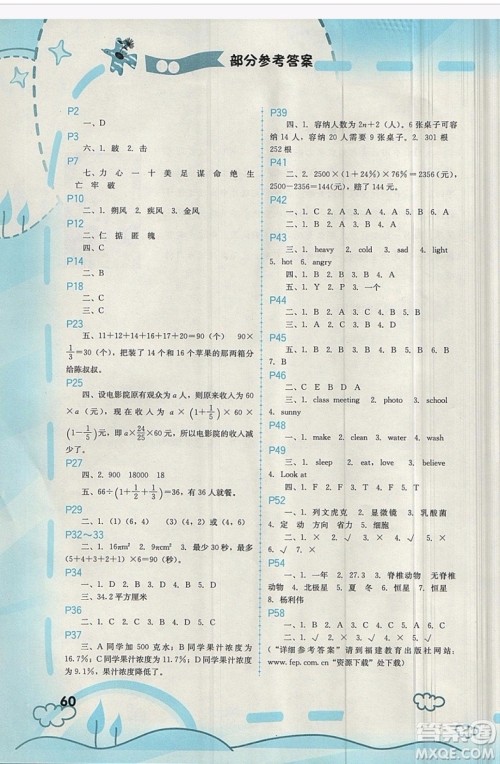 部分参考答案
P2
一、D
P3
六、1. 破 2. 击
P7
七、力 心 一 十 美 足 谋 命 绝 生
亡 牢 破
P10
二、1. 朔风 2. 疾风 3. 金风
P12
二、仁 掂 匪 魄
四、C
P14
二、B
P18
二、C
三、C
P23
五、11+12+14+16+17+20=90(个) 90×
1/3=30(个),把装了 14 个和 16 个苹果的那两箱分
给陈叔叔。
P25
四、设电影院原有观众为 a 人,则原来收入为 60
×a(元),现在收入为 60×(1+1/5)×a
×(1-1/5),即 a×24/25×60(元)。所以电影院的收入减
少了。
P27
四、2. 900 18000 18
五、66÷(1+1/2+1/3)=36,有 36 人就餐。
P29
二、1.(1)(6,4) (3)(4,2) 2.(6,4)
P32~33
二、1. 16πm² 2. 16πcm² 3. 最少 30 秒,最多 50 秒。
(5+4+3+2+1)×2=30。
P34
一、1. D 2. C 3. A 4. D 5. C
三、34.2 平方厘米
P35
二、1. B 2. C 3. A 4. D
P37
三、A 同学加 500 克水;B 同学果汁浓度为
16.7%;C 同学果汁浓度为 11.1%;D 同学果汁浓度
为 9.1%;E 同学果汁浓度为 9.1%。
60
P39
四、1. 容纳人数为 2n+2(人)。6 张桌子可
容纳 14 人,容纳 20 人需要 9 张桌子。2. 301 根
252 根
P41
三、2. 2500×(1+24%)×76%=2356(元),
2500-2356=144(元),赔了 144 元。
P42
一、1. C 2. A 3. A 4. A 5. B 6. A
P43
三、1. heavy 2. cold 3. sad 4. light
5. hot 6. angry
四、1. E 2. C 3. D 4. B 5. A
五、1. P 2. Y 3. 一个
P44
二、1. B 2. A 3. C 4. B 5. B
P45
五、1. B 2. A 3. B 4. B 5. A
P46
二、1. C 2. D 3. E 4. B 5. A
三、1. class meeting 2. photo 3. school
4. sunny
P48
二、1. make 2. clean 3. water 4. wash
三、1. First 2. shoes 3. Have 4. believe
5. Look at
四、1. F 2. F 3. T 4. F 5. T
P52
一、1. 列文虎克 2. 显微镜 3. 乳酸菌
4. 定 动 方向 省 5. 细胞
二、1. × 2. √ 3. × 4. × 5. ×
6. √ 7. √ 8. ×
P54
一、1. 一年 2. 27.3 3. 脊椎动物 无脊椎
动物 4. 北极星 5. 夏 冬 6. 卫星
8. 杨利伟
P58
二、1. × 2. √ 3. × 4. √ 5. √
(“详细参考答案”请到福建教育出版社网站:
www.fep.com.cn“资源下载”处下载)
答案圈
MXQE.COM